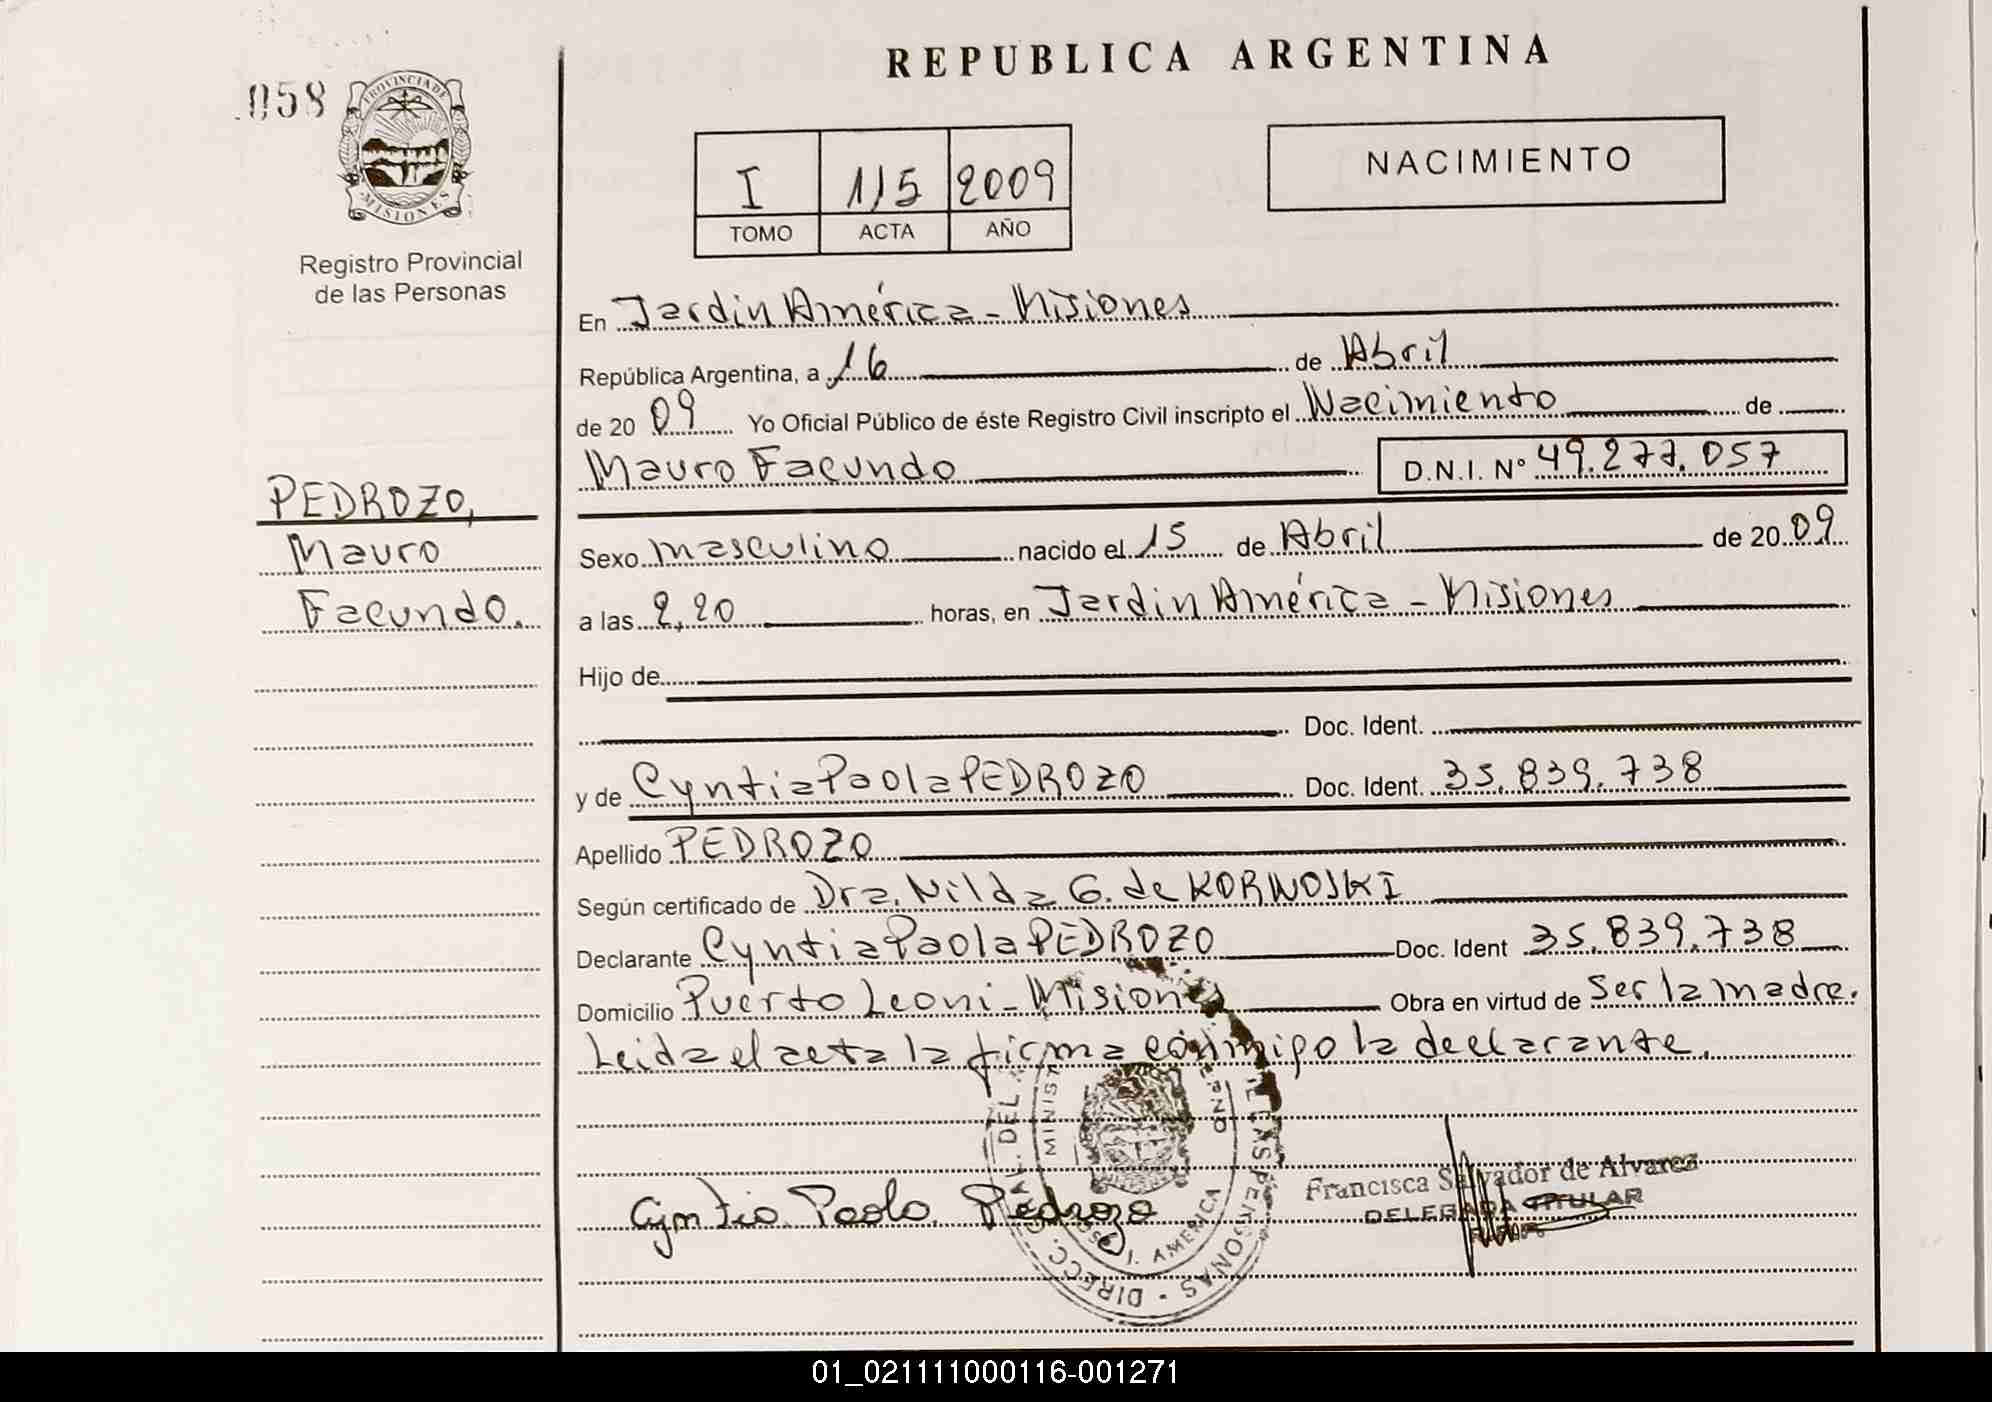 REPUBLICA ARGENTINA
058
PROVINCIA DE
MISIONES
Registro Provincial
de las Personas
I 115 2009
TOMO ACTA AÑO
NACIMIENTO
En Jardin América - Misiones
República Argentina, a 16 de Abril
de 2009 Yo Oficial Público de éste Registro Civil inscripto el Nacimiento de
Mauro Facundo D.N.I. Nº 49.277.057
PEDROZO,
Mauro
Facundo.
Sexo masculino nacido el 15 de Abril de 2009
a las 2,20 horas, en Jardin América - Misiones
Hijo de
Doc. Ident.
y de Cyntia Paola PEDROZO Doc. Ident. 35.839.738
Apellido PEDROZO
Según certificado de Dra. Nilda G. de KORNOSKI
Declarante Cyntia Paola PEDROZO Doc. Ident 35.839.738
Domicilio Puerto Leoni - Misiones Obra en virtud de Ser la madre.
Leida el acta la firma conmigo la declarante.
Cyntia Paola Pedrozo
Francisca Salvador de Alvarez
DELEGADA TITULAR
DIRECC. GRAL. DEL DE LAS PERSONAS
J. AMERICA
01_021111000116-001271